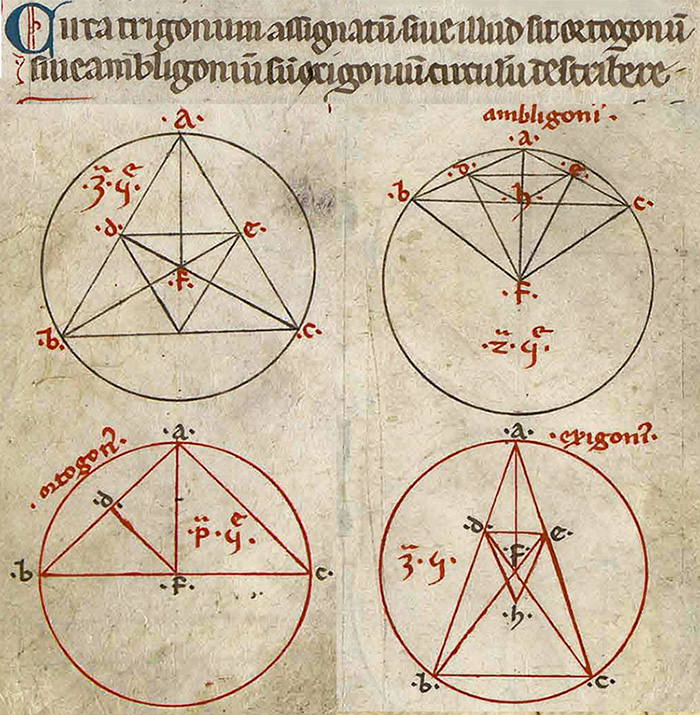 Circa trigonum assignatū siue illud sit ortogoniū
siue ambligoniū siue origoniū circulū describere
·a·
·d· ·e·
·f·
·b· ·c·
ambligoni·
·a·
·d· ·e·
·b· ·h· ·c·
·f·
·a·
ortogon
·d·
·b ·f· c·
·a· ·exigon
·d· ·e·
·f·
·h·
·b· ·c·